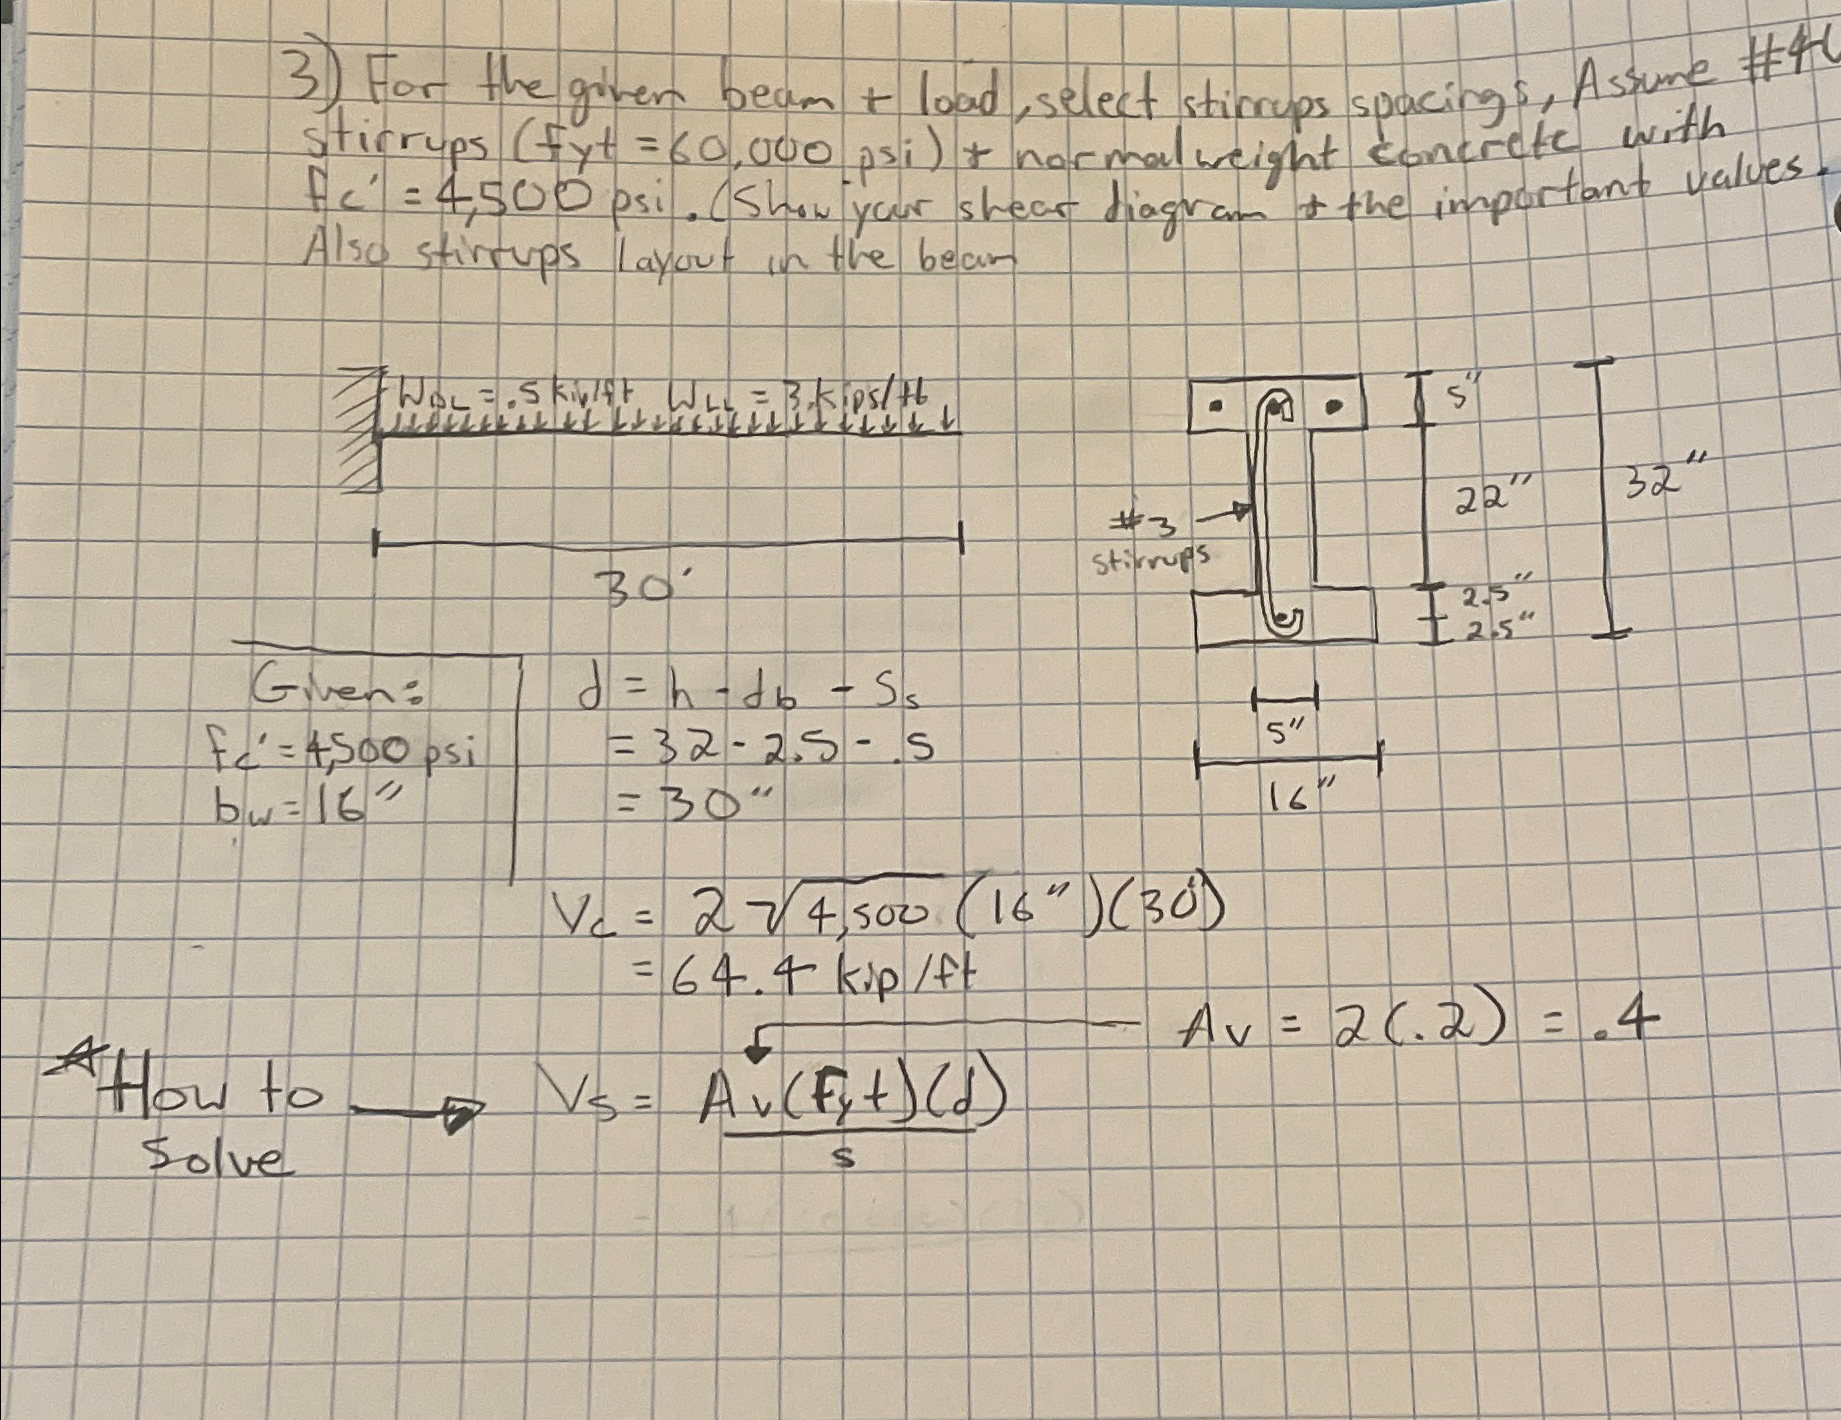 3) For the given beam + load, select stirrups spacings, Assume #4U
stirrups (fyt = 60,000 psi) + normal weight concrete with
fc' = 4,500 psi. (Show your shear diagram + the important values.
Also stirrups layout in the beam
WDL = .5 kip/ft WLL = 3 kips/ft
30'
#3
stirrups
5"
22"
2.5"
2.5"
32"
5"
16"
Given:
fc' = 4,500 psi
bw = 16"
d = h - db - Ss
= 32 - 2.5 - .5
= 30"
Vc = 2√4,500 (16")(30')
= 64.4 kip/ft
Av = 2(.2) = .4
How to
solve
Vs = Av(Fyt)(d)
s